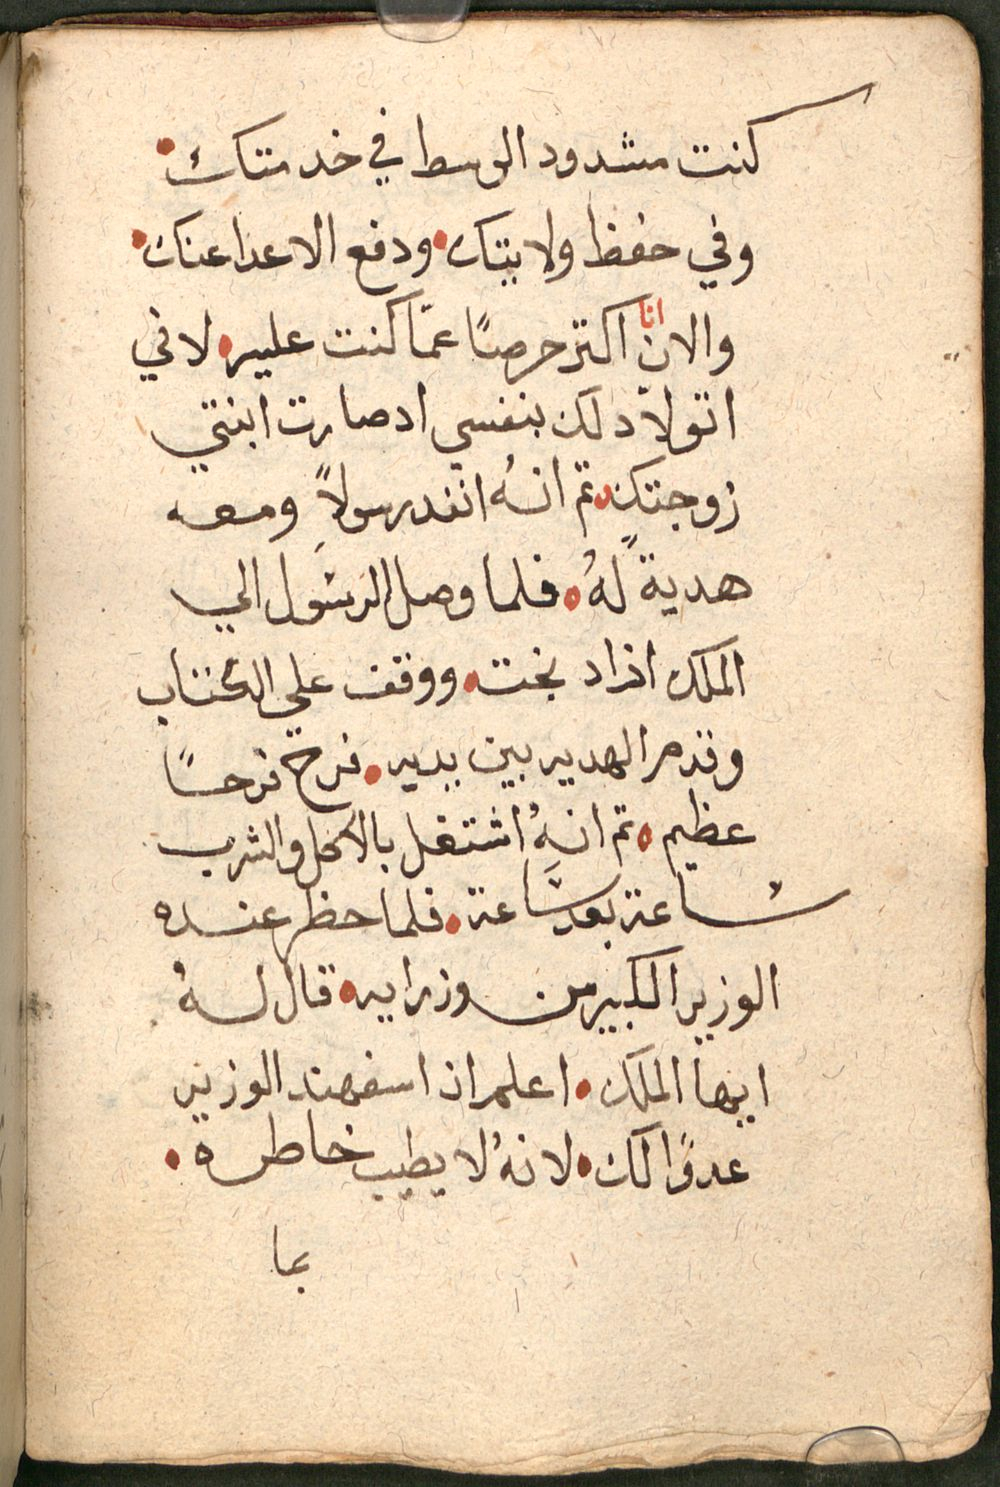 كنت مشدود الوسط في خدمتك
وفي حفظ ولايتك ودفع الاعدا عنك
والان انا اكتر حرصًا عمّا كنت عليه لاني
اتولا دلك بنفسي اد صارت ابنتي
زوجتك تم انهُ انفد رسولاً ومعه
هدية لهُ فلما وصل الرسول الي
الملك ازاد بخت ووقف علي الكتاب
وقدم الهديه بين يديه فرح فرحًا
عظيم تم انهُ اشتغل بالاكل والشرب
ساعة بعد ساعة فلما حظر عنده
الوزير الكبير من وزرايه قال لهُ
ايها الملك اعلم ان اسفهند الوزير
عدوًا لك لانهُ لا يطيب خاطره
بما